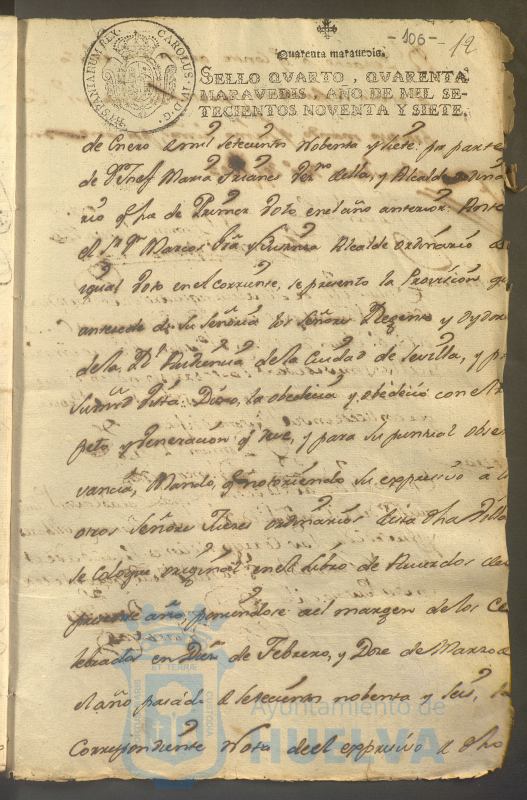 -106- 12
HISPANIARUM REX. CAROLUS IV D.G.
Quarenta maravedis.
SELLO QVARTO, QVARENTA
MARAVEDIS, AÑO DE MIL SE-
TECIENTOS NOVENTA Y SIETE.
de Enero de mil setecientos nobenta y siete: por parte
de Dn. Josef Maria Trianes vez.no de ella, y Alcalde ordina
rio q.e fue de Primer Voto en el año anterior: Ante
el S.r D.n Marcos Alcalde ordinario de
igual Voto en el corriente, se presento la Provision que
antesede de su Señoria los Señores Regente y Oydores
de la R.l Audiencia de la Ciudad de Sevilla, y p
su mrd vista: Dixo, la obedecia y obedeció con el Res
peto y veneracion q.e deve, y para su puntual obser
vancia, Mando, q.e notoriando su expressivo a los
otros Señores Jueces ordinarios de esta dha Villa
se coloque original en el Libro de Acuerdos del
presente año, poniendose al margen de los Ce
lebrados en Diez de Febrero, y Doze de Marzo de
el año pasado de setecientos nobenta y seis, la
Correspondiente Nota de el expressivo de dho
Ayuntamiento de
HUELVA